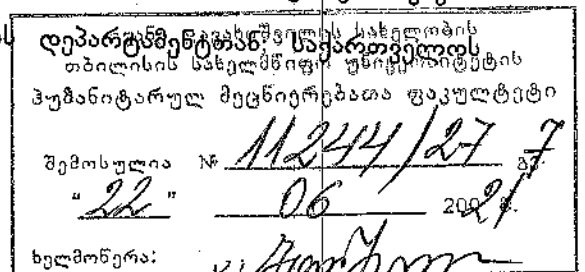 დეპარტამენტთან. საქართველოს
ივანე ჯავახიშვილის სახელობის
თბილისის სახელმწიფო უნივერსიტეტის
ჰუმანიტარულ მეცნიერებათა ფაკულტეტი
შემოსულია № 11244/27 7 გვ.
"22" 06 2021წ.
ხელმოწერა: